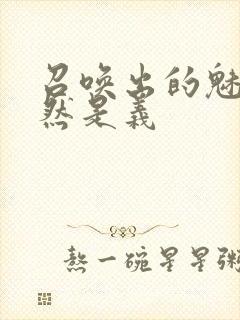 召唤出的魅
然是义
熬一碗星星粥